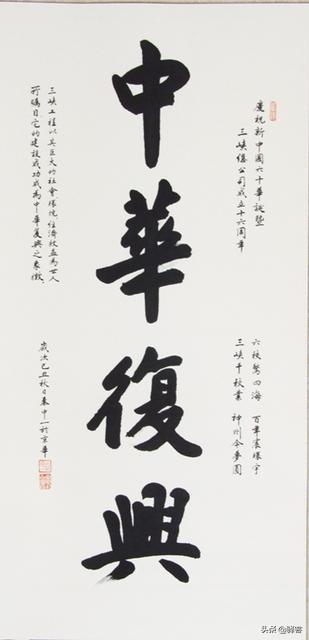 慶祝新中國六十華誕暨
三峽總公司成立十六周年
六秩驚四海 百年震環宇
三峽千秋業 神州今夢圓
中華復興
三峽工程以其巨大的社會環境經濟效益為世人
所矚目它的建設成功成為中華復興之象徵
歲次己丑秋日秦中一於京華
头条@驿客